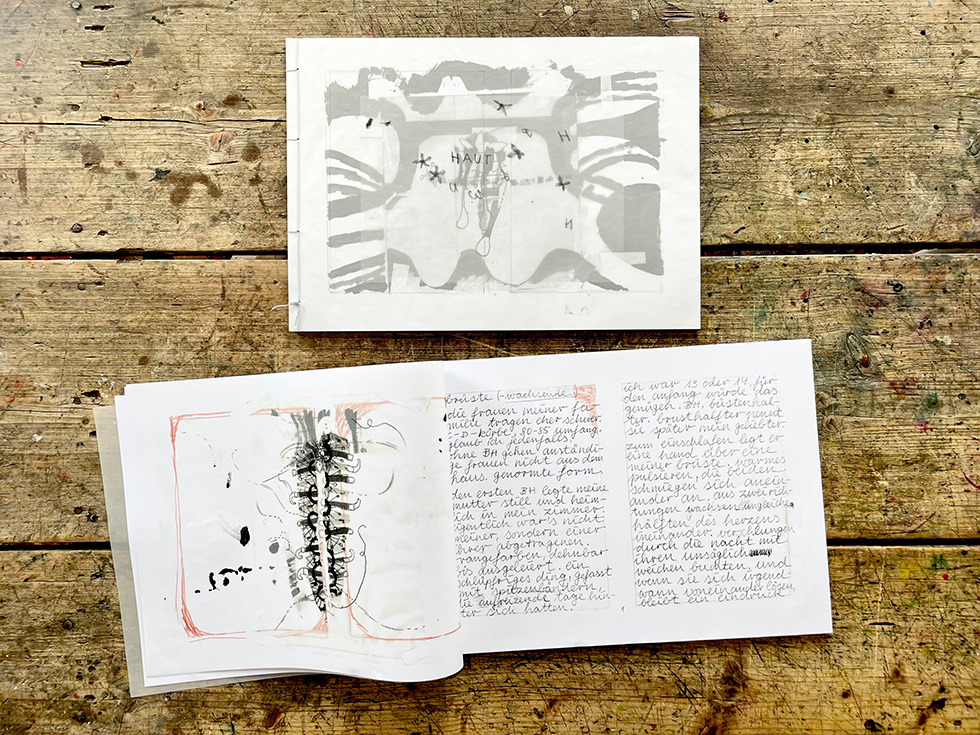 HAUT
H
N
brüste (-wachsende.)
die frauen meiner fa-
milie tragen eher schwer.
C-D-körbe, 80-85 umfang,
glaub ich jedenfalls.
ohne BH gehen anständi-
ge frauen nicht aus dem
haus. genormte form.
den ersten BH legte meine
mutter still und heim-
lich in mein zimmer.
eigentlich war's nicht
meiner, sondern einer
ihrer abgetragenen.
orangefarben, dehnbar
bis ausgeleiert. ein
schlüpfriges ding, gefasst
mit spitzenbändern,
die aufreizende tage hin-
ter sich hatten.
ich war 13 oder 14. für
den anfang würde das
genügen. BH. büstenhal-
ter. brusthalter nennt
sie später mein geliebter.
zum einschlafen legt er
eine hand über eine
meiner brüste. warmes
pulsieren, die beiden
schmiegen sich anein-
ander an. aus zwei rich-
tungen wachsen ungleiche
hälften des herzens
ineinander.
durch die nacht mit
ihren unsäglich
weichen buchten. und
wenn sie sich irgend
wann voneinander lösen,
bleibt ein eindruck.
1